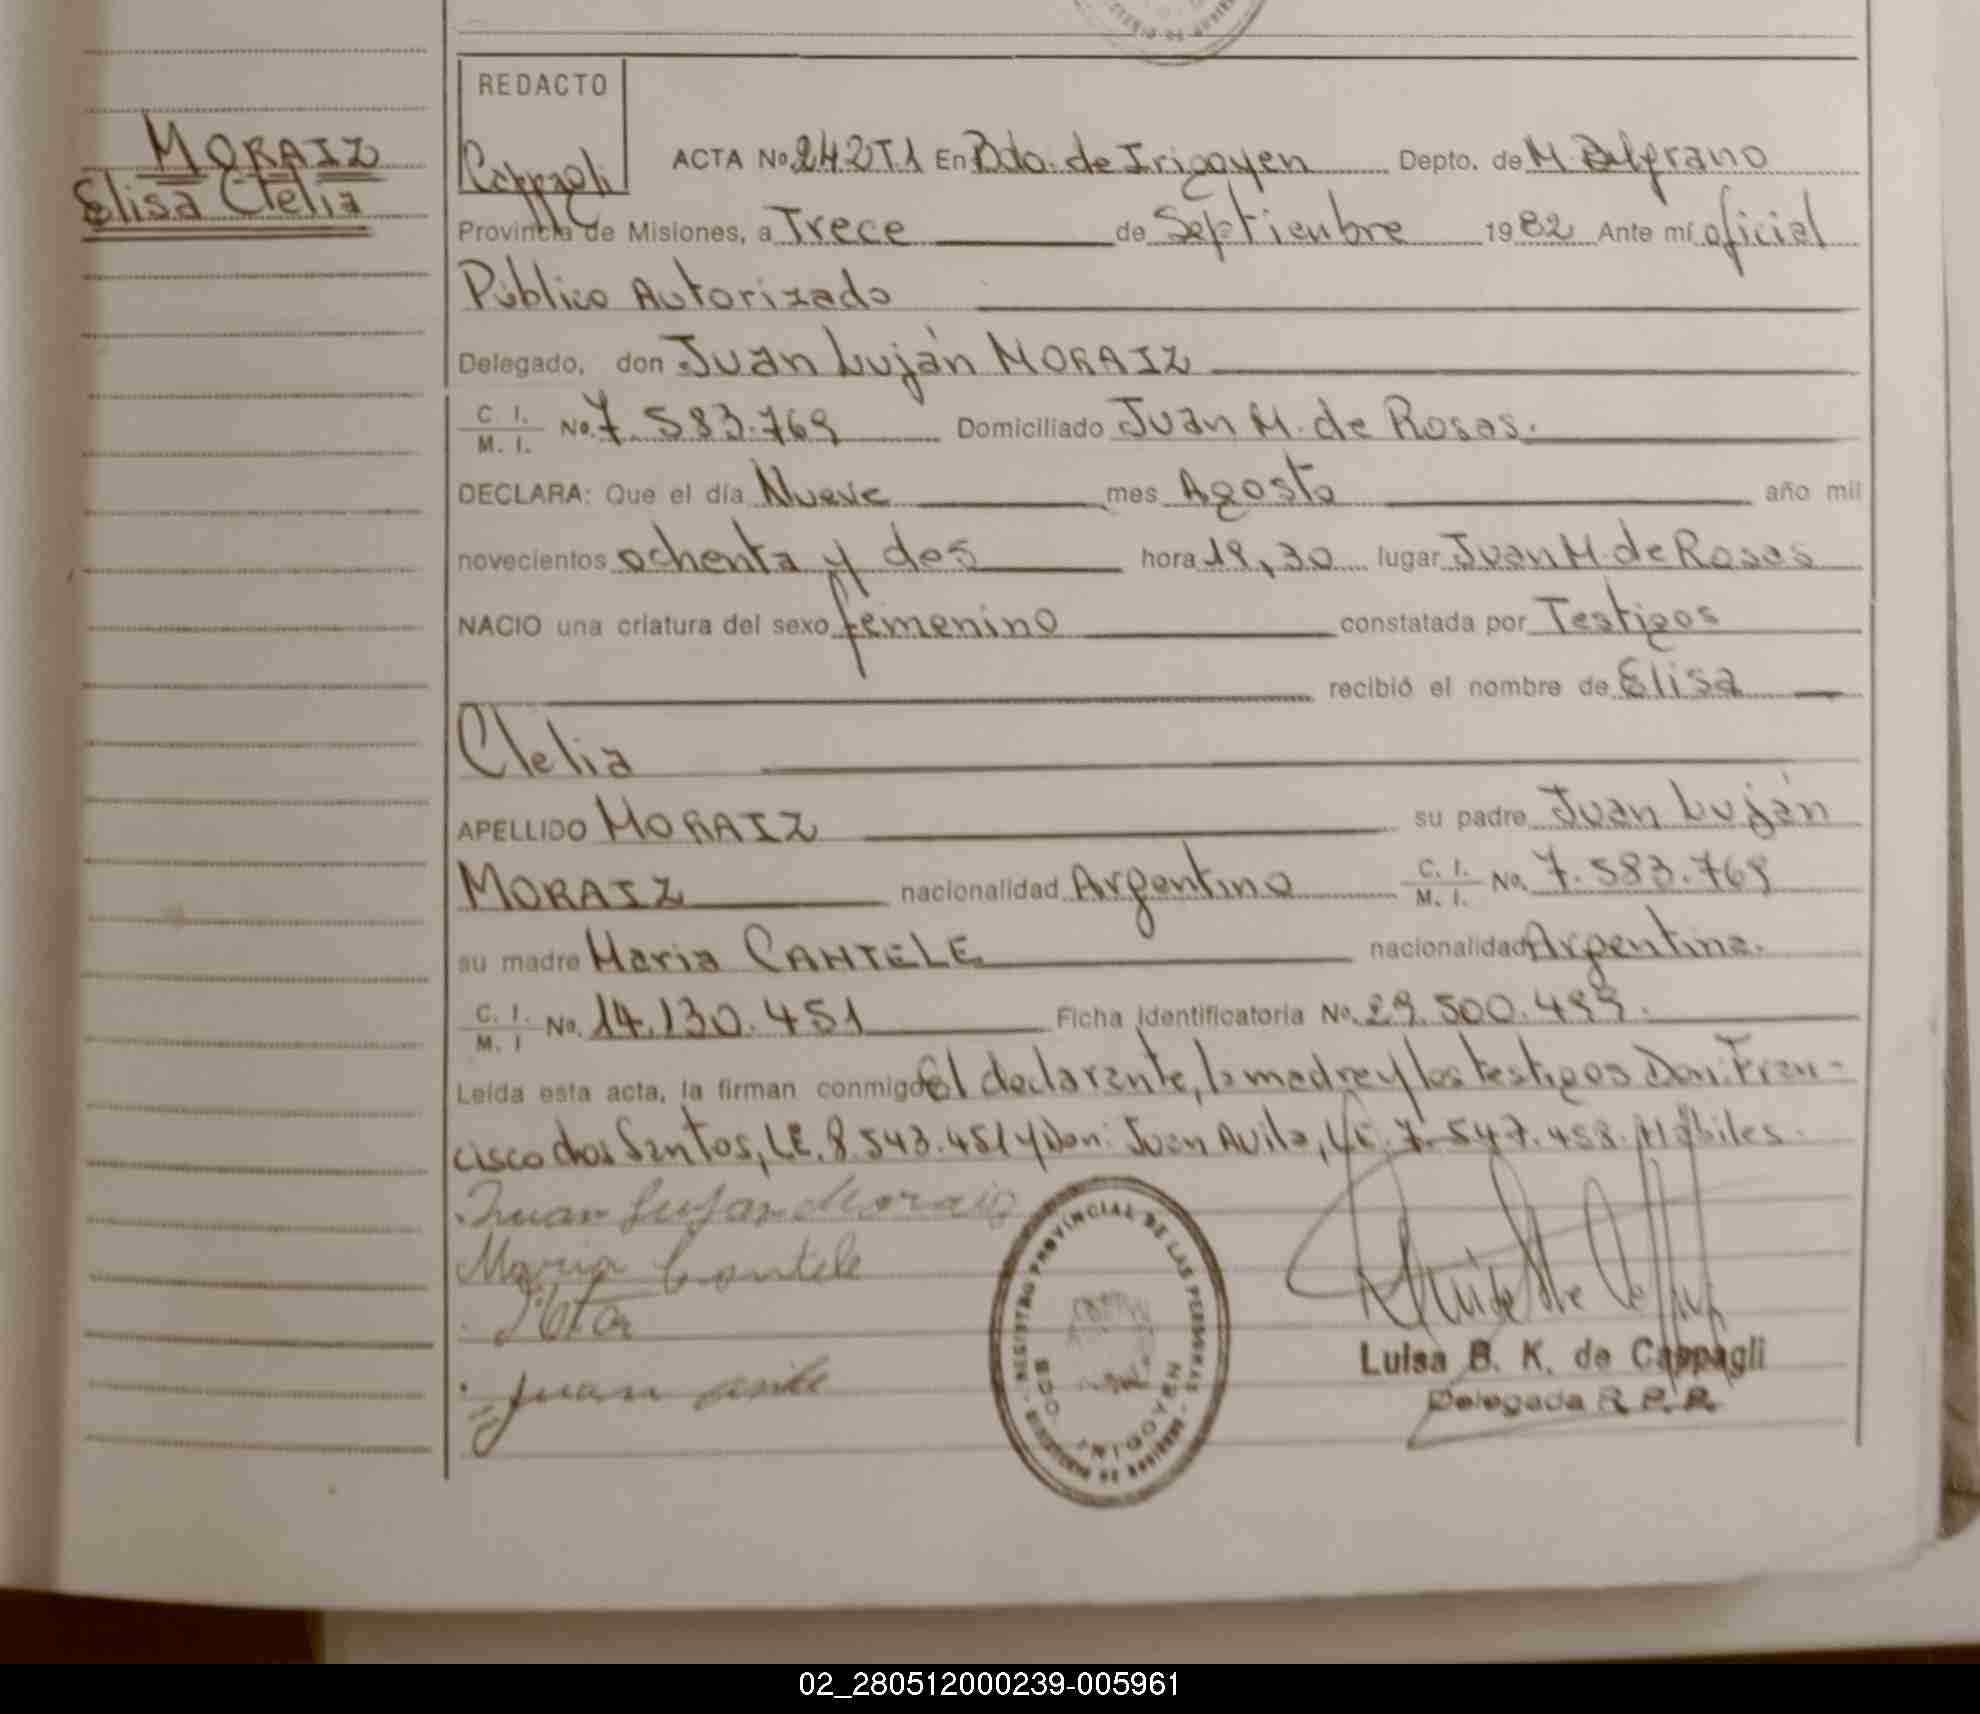 MORAIZ
Elisa Clelia
REDACTO
Cappagli
ACTA No. 242T1 En Bdo. de Irigoyen Depto. de M. Belgrano
Provincia de Misiones, a Trece de Septienbre 1982 Ante mí oficial
Público Autorizado
Delegado, don Juan Luján MORAIZ
C. I.
M. I. No. 7.583.769 Domiciliado Juan M. de Rosas.
DECLARA: Que el día Nueve mes Agosto año mil
novecientos ochenta y dos hora 19,30 lugar Juan M. de Rosas
NACIO una criatura del sexo femenino constatada por Testigos
recibió el nombre de Elisa
Clelia
APELLIDO MORAIZ su padre Juan Luján
MORAIZ nacionalidad Argentino C. I. M. I. No. 7.583.769
su madre Maria CANTELE nacionalidad Argentina.
C. I.
M. I No. 14.130.451 Ficha identificatoria No. 29.500.499.
Leída esta acta, la firman conmigo El declarante, la madre y los testigos Don: Fran-
cisco dos Santos, L.E. 8.543.451 y Don: Juan Avila, L.E. 7.547.458. Hábiles.
Juan Lujan Moraiz
Maria Cantele
Juan
REGISTRO PROVINCIAL DE LAS PERSONAS
BDO. IRIGOYEN
Luisa B. K. de Cappagli
Delegada R. P. P.
02_280512000239-005961